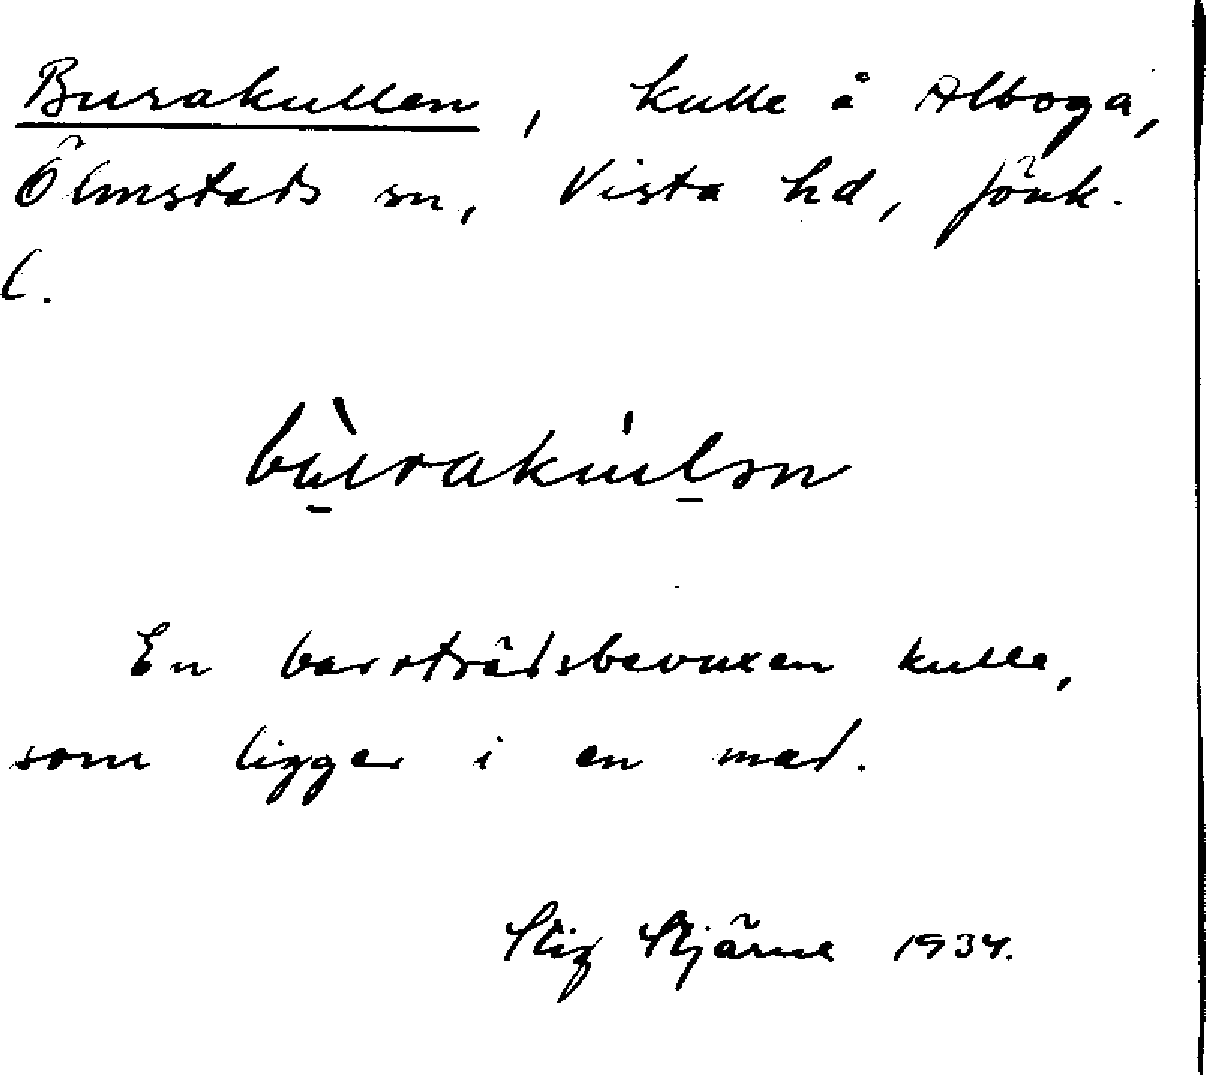 Burakullen, kulle å Alboga,
Ölmstads sn, Vista hd, Jönk.
l.
En barrträdsbevuxen kulle,
som ligger i en mad.
Stig Stjärne 1934.